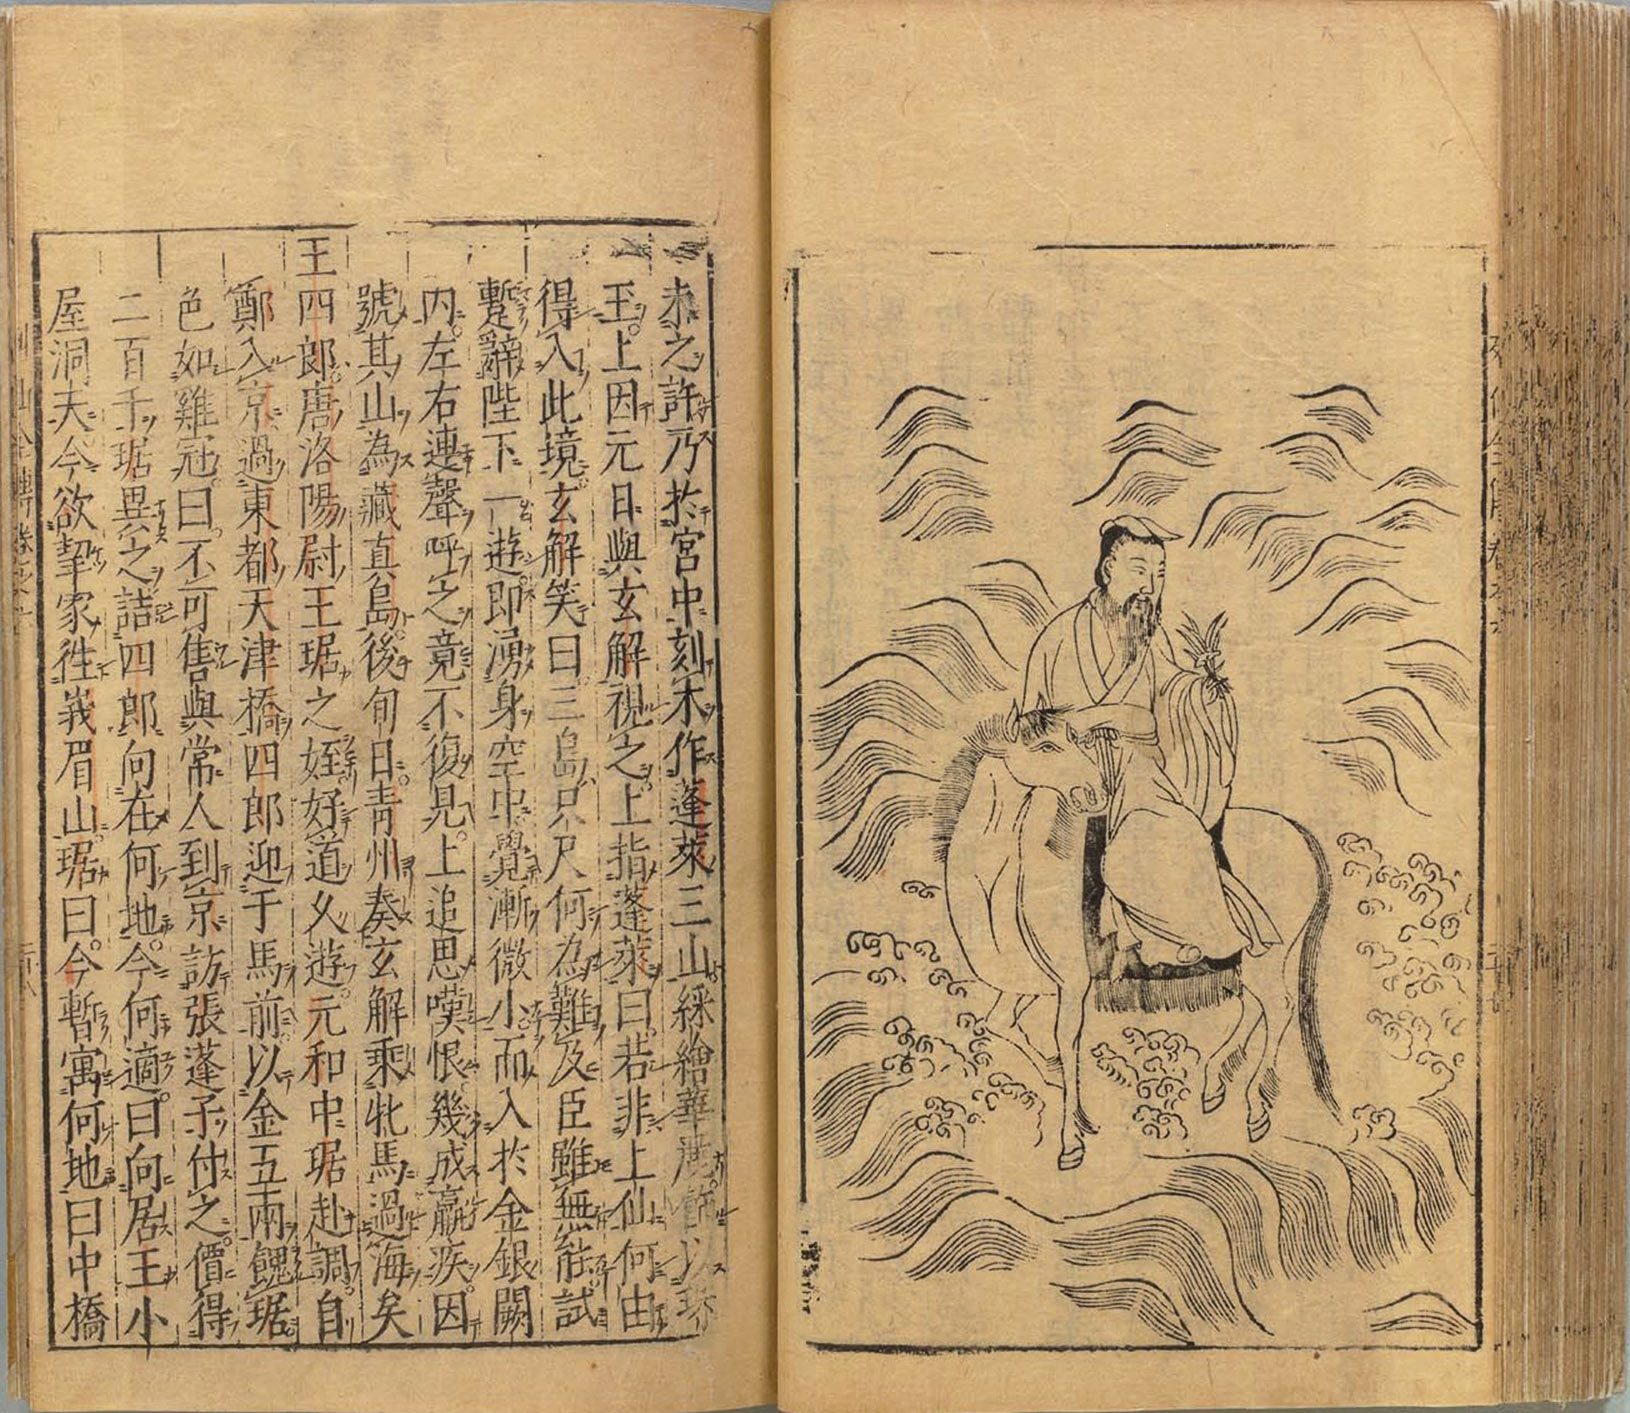 未之許乃於宮中刻木作蓬萊三山綵繪華麗飾以珠
玉上因元日與玄解視之上指蓬萊曰若非上仙何由
得入此境玄解笑曰三島咫尺何為難及臣雖無能試
蹔辭陛下一遊即湧身空中覺漸微小而入於金銀闕
内左右連聲呼之竟不復見上追思嘆恨幾成羸疾因
號其山為藏真島後旬日青州奏玄解乘牝馬過海矣
王四郎唐洛陽尉王琚之姪好道久遊元和中琚赴調自
鄭入京過東都天津橋四郎迎于馬前以金五兩餽琚
色如雞冠曰不可售與常人到京訪張蓬子付之價得
二百千琚異之詰四郎向在何地今何適曰向居王小
屋洞天今欲挈家徃峩眉山琚曰今暫寓何地曰中橋